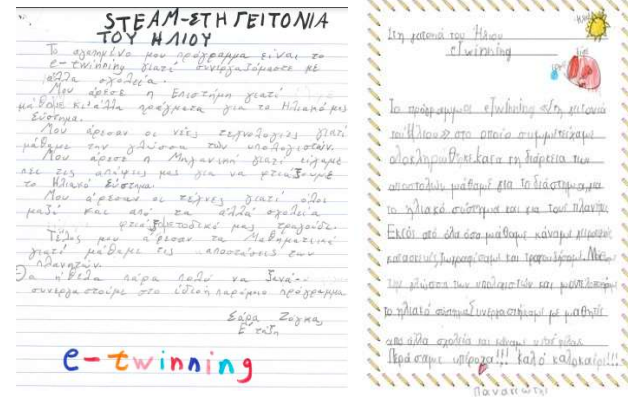 STEAM-ΣΤΗ ΓΕΙΤΟΝΙΑ
ΤΟΥ ΗΛΙΟΥ
Το αγαπημένο μου πρόγραμμα είναι το
e-twinning γιατί συνεργαζόμαστε με
άλλα σχολεία.
Μου άρεσε η Επιστήμη γιατί
μάθαμε κι άλλα πράγματα για το Ηλιακό μας
Σύστημα.
Μου άρεσαν οι νέες τεχνολογίες γιατί
μάθαμε την γλώσσα των υπολογιστών.
Μου άρεσε η Μηχανική γιατί είχαμε
τις απόψεις μας για να φτιάξουμε
το Ηλιακό Σύστημα.
Μου άρεσαν οι τέχνες γιατί όλοι
μαζί και από τα άλλα σχολεία
το δικό μας τραγούδι.
Τέλος μου άρεσαν τα Μαθηματικά
γιατί μάθαμε τις αποστάσεις των
πλανητών.
Θα ήθελα πάρα πολύ να ξανα-
συνεργαστούμε στο ίδιο ή παρόμοιο πρόγραμμα
Σάρα
Ε' τάξη
e-twinning
Στη γειτονιά του Ήλιου
eTwinning
Το πρόγραμμα eTwinning «Στη γειτονιά
του Ήλιου» στο οποίο συμμετείχαμε
ολοκληρώθηκε. Κατά τη διάρκεια των
αποστολών μάθαμε για το διάστημα, για
το ηλιακό σύστημα και για τους πλανήτες.
Εκτός από όλα όσα μάθαμε κάναμε
κατασκευές, ζωγραφίσαμε και τραγουδήσαμε. Μάθαμε
την γλώσσα των υπολογιστών και
το ηλιακό σύστημα. Συνεργαστήκαμε με μαθητές
από άλλα σχολεία και κάναμε φίλους.
Περάσαμε υπέροχα!!! Καλό καλοκαίρι!!!
Παναγιώτης